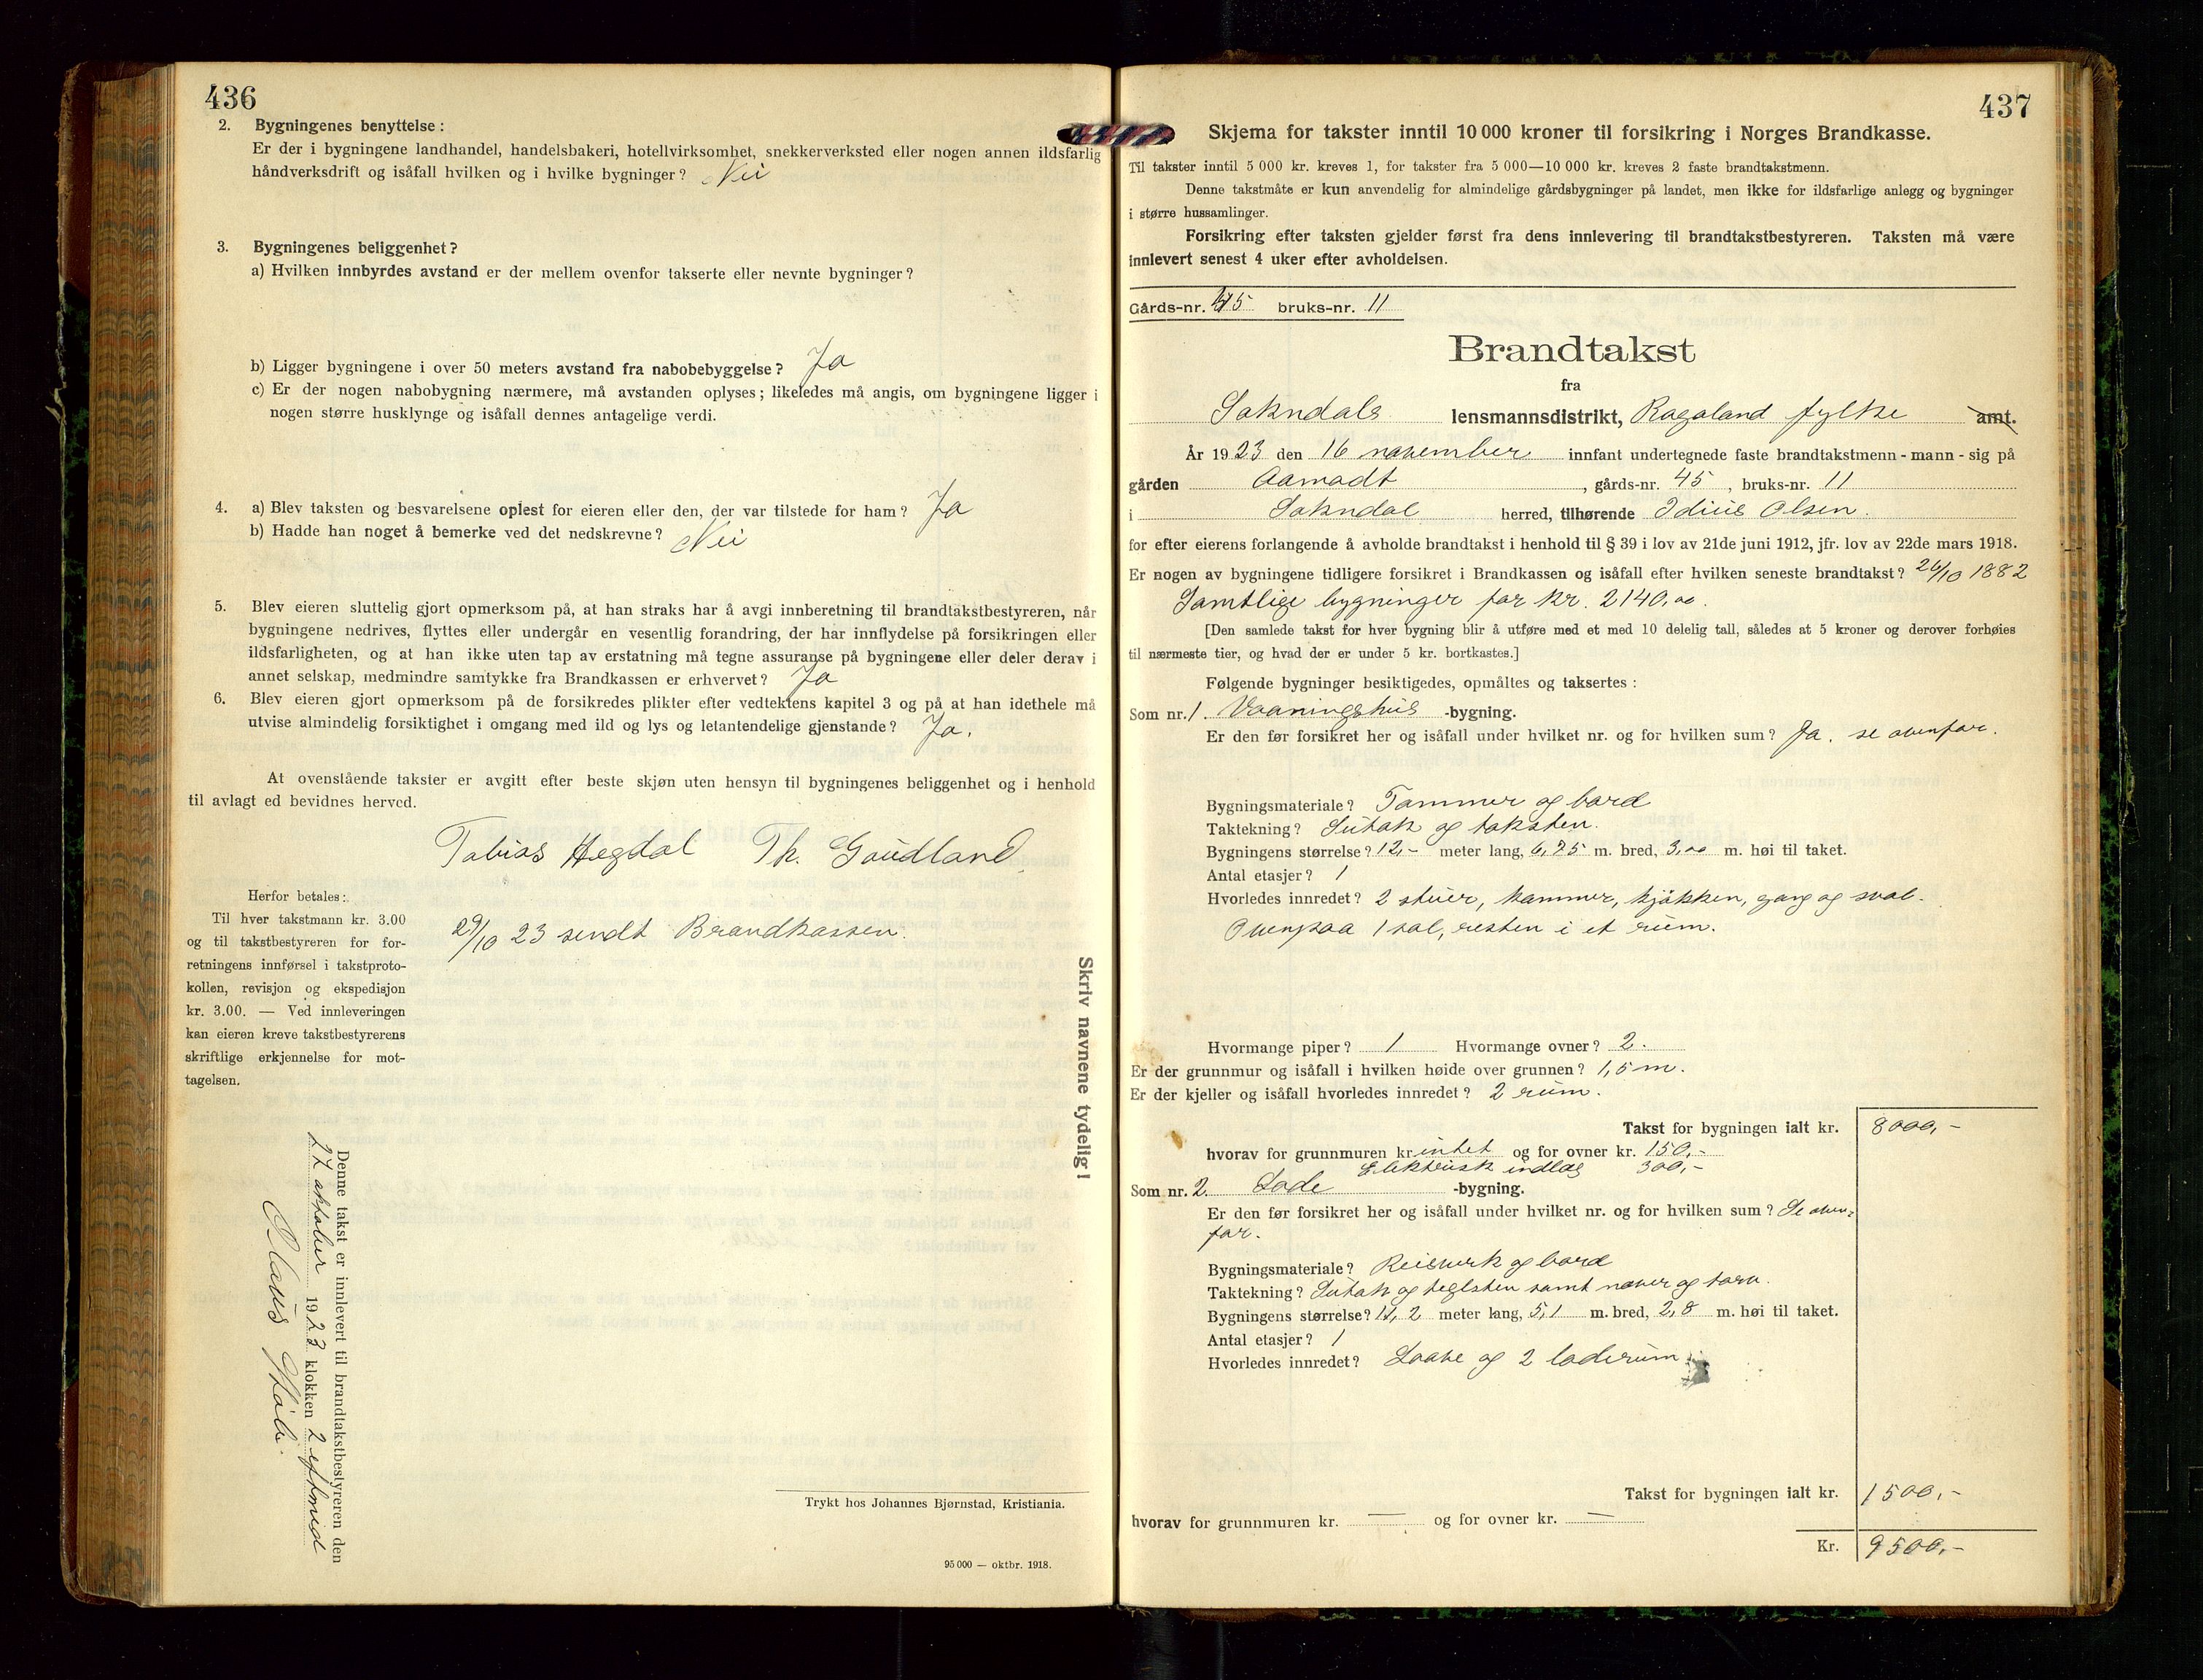 436
2. Bygningenes benyttelse:
Er der i bygningene landhandel, handelsbakeri, hotellvirksomhet, snekkerverksted eller nogen annen ildsfarlig
håndverksdrift og isåfall hvilken og i hvilke bygninger? Nei
3. Bygningenes beliggenhet?
a) Hvilken innbyrdes avstand er der mellem ovenfor takserte eller nevnte bygninger?
b) Ligger bygningene i over 50 meters avstand fra nabobebyggelse? Ja
c) Er der nogen nabobygning nærmere, må avstanden oplyses; likeledes må angis, om bygningene ligger i
nogen større husklynge og isåfall dennes antagelige verdi.
4. a) Blev taksten og besvarelsene oplest for eieren eller den, der var tilstede for ham? Ja
b) Hadde han noget å bemerke ved det nedskrevne? Nei
5. Blev eieren sluttelig gjort opmerksom på, at han straks har å avgi innberetning til brandtakstbestyreren, når
bygningene nedrives, flyttes eller undergår en vesentlig forandring, der har innflydelse på forsikringen eller
ildsfarligheten, og at han ikke uten tap av erstatning må tegne assuranse på bygningene eller deler derav i
annet selskap, medmindre samtykke fra Brandkassen er erhvervet? Ja
6. Blev eieren gjort opmerksom på de forsikredes plikter efter vedtektens kapitel 3 og på at han idethele må
utvise almindelig forsiktighet i omgang med ild og lys og letantendelige gjenstande? Ja.
At ovenstående takster er avgitt efter beste skjøn uten hensyn til bygningenes beliggenhet og i henhold
til avlagt ed bevidnes herved.
Tobias Hegdal Th. Goudland
Herfor betales:
Til hver takstmann kr. 3.00
og til takstbestyreren for for-
retningens innførsel i takstproto-
kollen, revisjon og ekspedisjon
kr. 3.00. — Ved innleveringen
kan eieren kreve takstbestyrerens
skriftlige erkjennelse for mot-
tagelsen.
29/10 23 sendt Brandkassen.
Skriv navnene tydelig!
Denne takst er innlevert til brandtakstbestyreren den
27 oktober 1923 klokken 2 eftmid
Trykt hos Johannes Bjørnstad, Kristiania.
95 000 — oktbr. 1918.
437
Skjema for takster inntil 10 000 kroner til forsikring i Norges Brandkasse.
Til takster inntil 5 000 kr. kreves 1, for takster fra 5 000—10 000 kr. kreves 2 faste brandtakstmenn.
Denne takstmåte er kun anvendelig for almindelige gårdsbygninger på landet, men ikke for ildsfarlige anlegg og bygninger
i større hussamlinger.
Forsikring efter taksten gjelder først fra dens innlevering til brandtakstbestyreren. Taksten må være
innlevert senest 4 uker efter avholdelsen.
Gårds-nr. 45 bruks-nr. 11
Brandtakst
fra
Sokndals lensmannsdistrikt, Rogaland fylke amt.
År 1923 den 16 november innfant undertegnede faste brandtakstmenn - mann - sig på
gården Aamodt, gårds-nr. 45, bruks-nr. 11
i Sokndal herred, tilhørende Idius Olsen.
for efter eierens forlangende å avholde brandtakst i henhold til § 39 i lov av 21de juni 1912, jfr. lov av 22de mars 1918.
Er nogen av bygningene tidligere forsikret i Brandkassen og isåfall efter hvilken seneste brandtakst? 26/10 1882
Samtlige bygninger for kr. 2140,00.
[Den samlede takst for hver bygning blir å utføre med et med 10 delelig tall, således at 5 kroner og derover forhøies
til nærmeste tier, og hvad der er under 5 kr. bortkastes.]
Følgende bygninger besiktigedes, opmåltes og taksertes:
Som nr. 1. Vaaningshus -bygning.
Er den før forsikret her og isåfall under hvilket nr. og for hvilken sum? Ja. se ovenfor.
Bygningsmateriale? Tømmer og bord
Taktekning? Sutak og taksten.
Bygningens størrelse? 12,- meter lang, 6,75 m. bred, 3,00 m. høi til taket.
Antal etasjer? 1
Hvorledes innredet? 2 stuer, kammer, kjøkken, gang og sval.
Ovenpaa 1 sal, resten i et rum.
Hvormange piper? 1 Hvormange ovner? 2.
Er der grunnmur og isåfall i hvilken høide over grunnen? 1,5 m.
Er der kjeller og isåfall hvorledes innredet? 2 rum.
Takst for bygningen ialt kr. 8000,-
hvorav for grunnmuren kr. intet og for ovner kr. 150,-
Elektrisk indlæg 300,-
Som nr. 2. Lode -bygning.
Er den før forsikret her og isåfall under hvilket nr. og for hvilken sum? Se oven-
for.
Bygningsmateriale? Reisverk og bord
Taktekning? Sutak og teglsten samt næver og torv.
Bygningens størrelse? 11,2 meter lang, 5,1 m. bred, 2,8 m. høi til taket.
Antal etasjer? 1
Hvorledes innredet? Laave og 2 loderum
Takst for bygningen ialt kr. 1500,-
hvorav for grunnmuren kr. — og for ovner kr. —
Kr. 9500,-